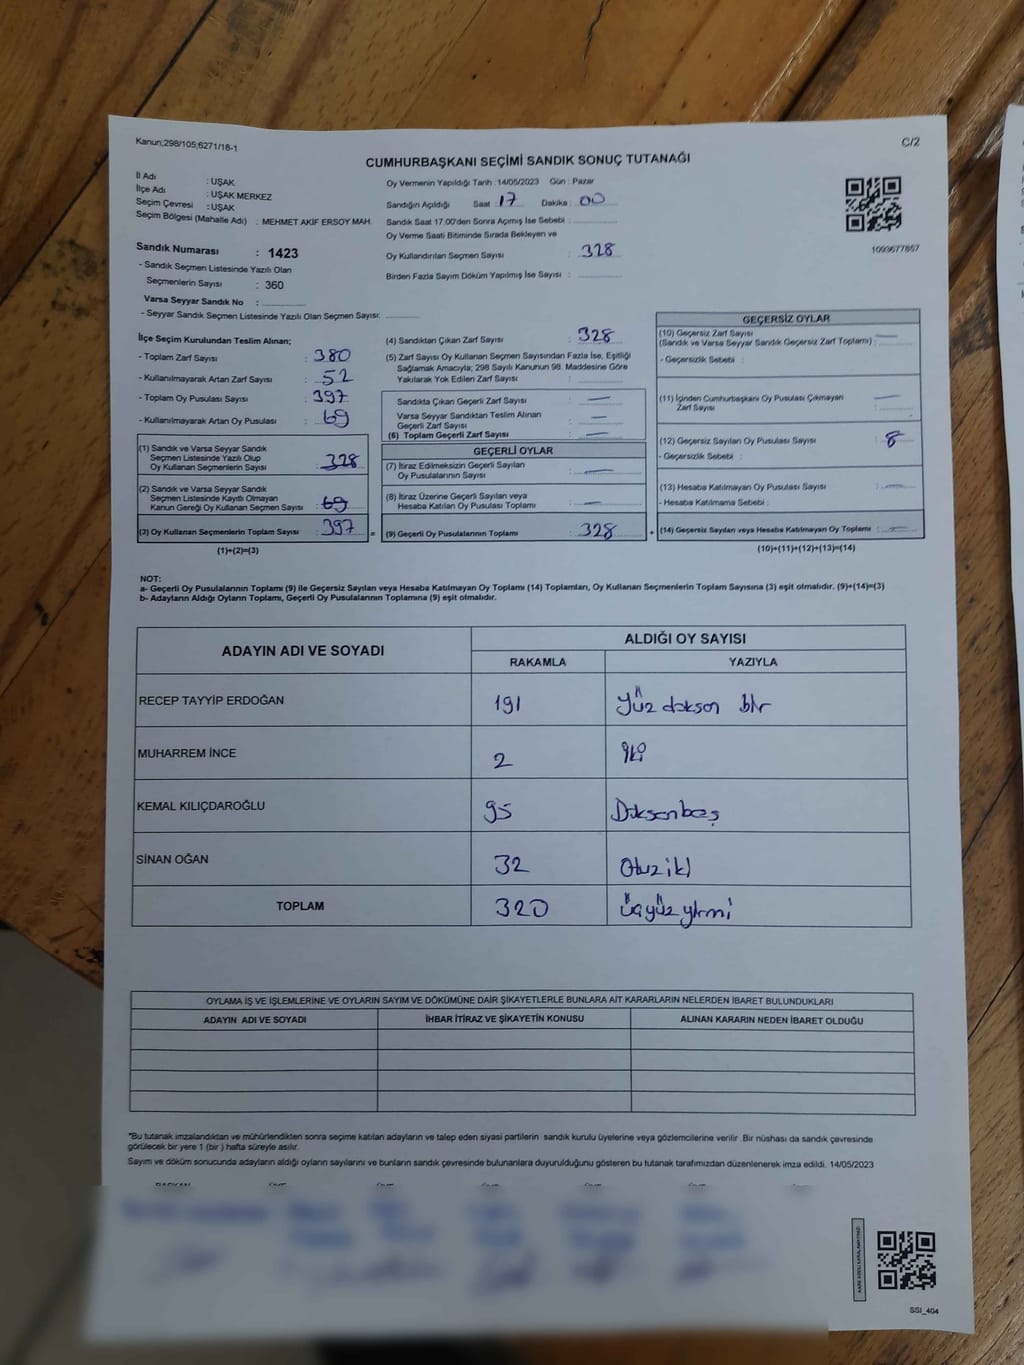 Kanun;298/105;6271/18-1
C/2
CUMHURBAŞKANI SEÇİMİ SANDIK SONUÇ TUTANAĞI
İl Adı : UŞAK
İlçe Adı : UŞAK MERKEZ
Seçim Çevresi : UŞAK
Seçim Bölgesi (Mahalle Adı) : MEHMET AKİF ERSOY MAH.
Sandık Numarası : 1423
- Sandık Seçmen Listesinde Yazılı Olan
Seçmenlerin Sayısı : 360
Varsa Seyyar Sandık No :
- Seyyar Sandık Seçmen Listesinde Yazılı Olan Seçmen Sayısı:
Oy Vermenin Yapıldığı Tarih : 14/05/2023 Gün : Pazar
Sandığın Açıldığı Saat : 17 Dakika : 00
Sandık Saat 17.00'den Sonra Açımış İse Sebebi :
Oy Verme Saati Bitiminde Sırada Bekleyen ve
Oy Kullandırılan Seçmen Sayısı : 328
Birden Fazla Sayım Döküm Yapılmış İse Sayısı :
1093677857
İlçe Seçim Kurulundan Teslim Alınan;
- Toplam Zarf Sayısı : 380
- Kullanılmayarak Artan Zarf Sayısı : 52
- Toplam Oy Pusulası Sayısı : 397
- Kullanılmayarak Artan Oy Pusulası : 69
(1) Sandık ve Varsa Seyyar Sandık
Seçmen Listesinde Yazılı Olup
Oy Kullanan Seçmenlerin Sayısı : 328
(2) Sandık ve Varsa Seyyar Sandık
Seçmen Listesinde Kayıtlı Olmayan
Kanun Gereği Oy Kullanan Seçmen Sayısı : 69
(3) Oy Kullanan Seçmenlerin Toplam Sayısı : 397 =
(1)+(2)=(3)
(4) Sandıktan Çıkan Zarf Sayısı : 328
(5) Zarf Sayısı Oy Kullanan Seçmen Sayısından Fazla İse, Eşitliği
Sağlamak Amacıyla; 298 Sayılı Kanunun 98. Maddesine Göre
Yakılarak Yok Edilen Zarf Sayısı :
Sandıkta Çıkan Geçerli Zarf Sayısı : —
Varsa Seyyar Sandıktan Teslim Alınan
Geçerli Zarf Sayısı : —
(6) Toplam Geçerli Zarf Sayısı : —
GEÇERLİ OYLAR
(7) İtiraz Edilmeksizin Geçerli Sayılan
Oy Pusulalarının Sayısı : —
(8) İtiraz Üzerine Geçerli Sayılan veya
Hesaba Katılan Oy Pusulası Toplamı : —
(9) Geçerli Oy Pusulalarının Toplamı : 328 +
GEÇERSİZ OYLAR
(10) Geçersiz Zarf Sayısı
(Sandık ve Varsa Seyyar Sandık Geçersiz Zarf Toplamı) : —
- Geçersizlik Sebebi :
(11) İçinden Cumhurbaşkanı Oy Pusulası Çıkmayan
Zarf Sayısı : —
(12) Geçersiz Sayılan Oy Pusulası Sayısı : 8
- Geçersizlik Sebebi :
(13) Hesaba Katılmayan Oy Pusulası Sayısı : —
- Hesaba Katılmama Sebebi :
(14) Geçersiz Sayılan veya Hesaba Katılmayan Oy Toplamı : —
(10)+(11)+(12)+(13)=(14)
NOT:
a- Geçerli Oy Pusulalarının Toplamı (9) ile Geçersiz Sayılan veya Hesaba Katılmayan Oy Toplamı (14) Toplamları, Oy Kullanan Seçmenlerin Toplam Sayısına (3) eşit olmalıdır. (9)+(14)=(3)
b- Adayların Aldığı Oyların Toplamı, Geçerli Oy Pusulalarının Toplamına (9) eşit olmalıdır.
ADAYIN ADI VE SOYADI ALDIĞI OY SAYISI
RAKAMLA YAZIYLA
RECEP TAYYİP ERDOĞAN 191 Yüz doksan bir
MUHARREM İNCE 2 İki
KEMAL KILIÇDAROĞLU 95 Doksanbeş
SİNAN OĞAN 32 Otuz iki
TOPLAM 320 üçyüz yirmi
OYLAMA İŞ VE İŞLEMLERİNE VE OYLARIN SAYIM VE DÖKÜMÜNE DAİR ŞİKAYETLERLE BUNLARA AİT KARARLARIN NELERDEN İBARET BULUNDUKLARI
ADAYIN ADI VE SOYADI İHBAR İTİRAZ VE ŞİKAYETİN KONUSU ALINAN KARARIN NEDEN İBARET OLDUĞU
"Bu tutanak imzalandıktan ve mühürlendikten sonra seçime katılan adayların ve talep eden siyasi partilerin sandık kurulu üyelerine veya gözlemcilerine verilir. Bir nüshası da sandık çevresinde
görülecek bir yere 1 (bir) hafta süreyle asılır.
Sayım ve döküm sonucunda adayların aldığı oyların sayılarını ve bunların sandık çevresinde bulunanlara duyurulduğunu gösteren bu tutanak tarafımızdan düzenlenerek imza edildi. 14/05/2023
SSI_404